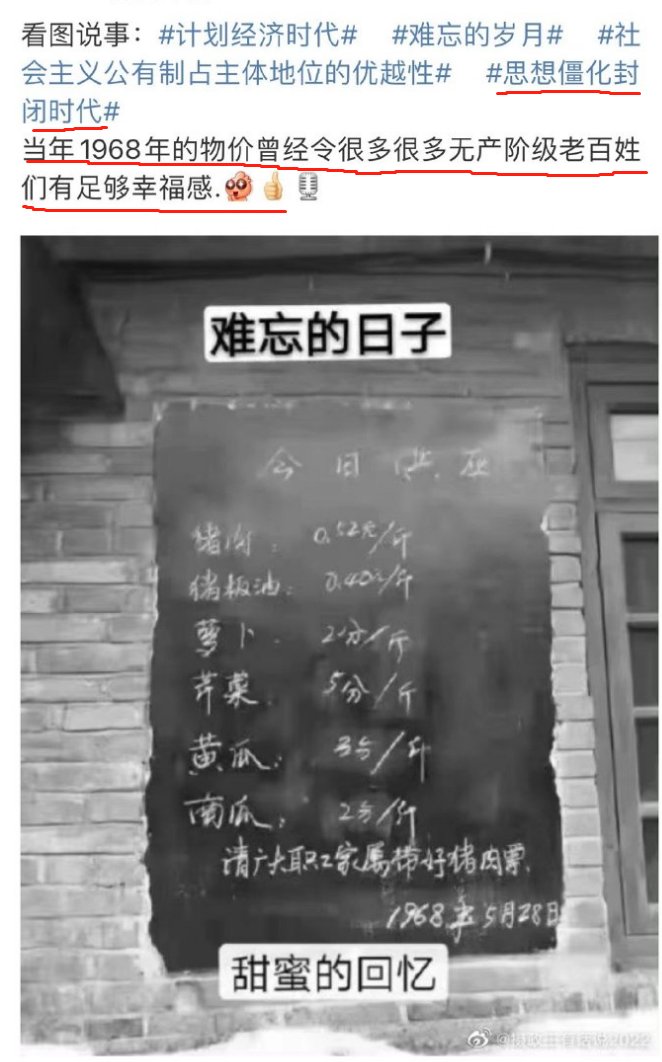 看图说事：#计划经济时代# #难忘的岁月# #社
会主义公有制占主体地位的优越性# #思想僵化封
闭时代#
当年1968年的物价曾经令很多很多无产阶级老百姓
们有足够幸福感.
难忘的日子
今日供应
猪肉：0.52元/斤
猪板油：0.40元/斤
萝卜 2分/斤
芹菜 5分/斤
黄瓜：3分/斤
南瓜：2分/斤
请广大职工家属带好猪肉票.
1968年5月28日
甜蜜的回忆